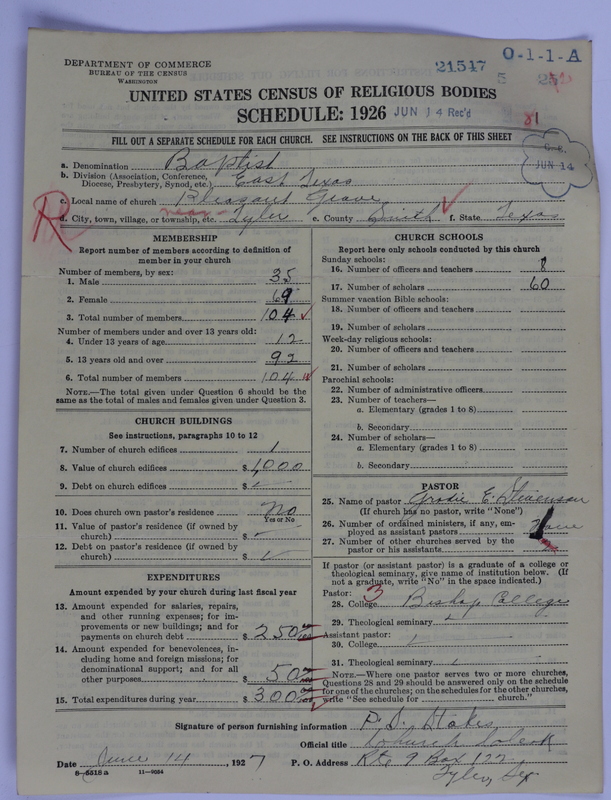 DEPARTMENT OF COMMERCE
BUREAU OF THE CENSUS
WASHINGTON
21547
O-1-1-A
UNITED STATES CENSUS OF RELIGIOUS BODIES
SCHEDULE: 1926
JUN 14 Rec'd
FILL OUT A SEPARATE SCHEDULE FOR EACH CHURCH. SEE INSTRUCTIONS ON THE BACK OF THIS SHEET
JUN 14
a. Denomination Baptist
b. Division (Association, Conference, Diocese, Presbytery, Synod, etc.) East Texas
c. Local name of church Pleasant Grove
R
d. City, town, village, or township, etc. near Tyler e. County Smith f. State Texas
MEMBERSHIP
Report number of members according to definition of
member in your church
Number of members, by sex:
1. Male 35
2. Female 69
3. Total number of members 104
Number of members under and over 13 years old:
4. Under 13 years of age 12
5. 13 years old and over 92
6. Total number of members 104
NOTE.—The total given under Question 6 should be
same as the total of males and females given under Question 3.
CHURCH BUILDINGS
See instructions, paragraphs 10 to 12
7. Number of church edifices 1
8. Value of church edifices $ 1,000
9. Debt on church edifices $
10. Does church own pastor's residence No
Yes or No
11. Value of pastor's residence (if owned by
church) $
12. Debt on pastor's residence (if owned by
church) $
EXPENDITURES
Amount expended by your church during last fiscal year
13. Amount expended for salaries, repairs,
and other running expenses; for im-
provements or new buildings; and for
payments on church debt $ 250
14. Amount expended for benevolences, in-
cluding home and foreign missions; for
denominational support; and for all
other purposes $ 50
15. Total expenditures during year $ 300
CHURCH SCHOOLS
Report here only schools conducted by this church
Sunday schools:
16. Number of officers and teachers 8
17. Number of scholars 60
Summer vacation Bible schools:
18. Number of officers and teachers
19. Number of scholars
Week-day religious schools:
20. Number of officers and teachers
21. Number of scholars
Parochial schools:
22. Number of administrative officers
23. Number of teachers—
a. Elementary (grades 1 to 8)
b. Secondary
24. Number of scholars—
a. Elementary (grades 1 to 8)
b. Secondary
PASTOR
25. Name of pastor E. Stevenson
(If church has no pastor, write "None")
26. Number of ordained ministers, if any, em-
ployed as assistant pastors None
27. Number of other churches served by the
pastor or his assistants
If pastor (or assistant pastor) is a graduate of a college or
theological seminary, give name of institution below. (If
not a graduate, write "No" in the space indicated.)
Pastor: 3
28. College Bishop College
29. Theological seminary
Assistant pastor:
30. College
31. Theological seminary
NOTE.—Where one pastor serves two or more churches,
Questions 28 and 29 should be answered only on the schedule
for one of the churches; on the schedules for the other churches,
write "See schedule for church."
Signature of person furnishing information P. S. Stokes
Official title Church
Date June 14, 1927 P. O. Address Rte 9 Box 122
Tyler, Tex
8-5518 a 11-9054